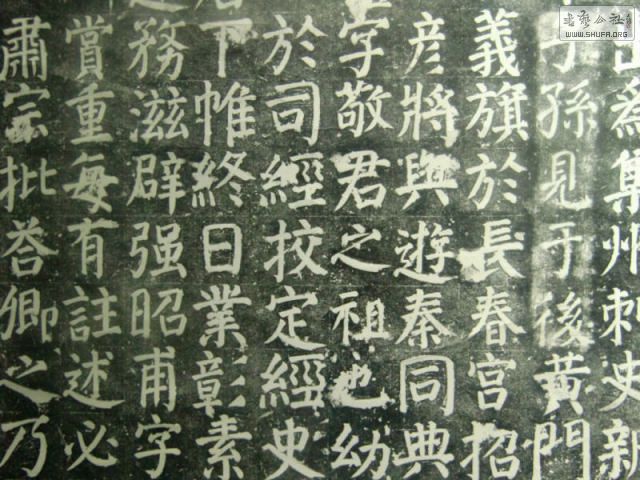 出為集州刺史新
子孫見于後黃門
義旗於長春宮招
彦將與遊秦同典
字敬君之祖也幼
於司經挍定經史
下帷終日業彰素
務滋辟强昭甫字
賞重每有註述必
肅宗批荅卿之乃
書藝公社
WWW.SHUFA.ORG